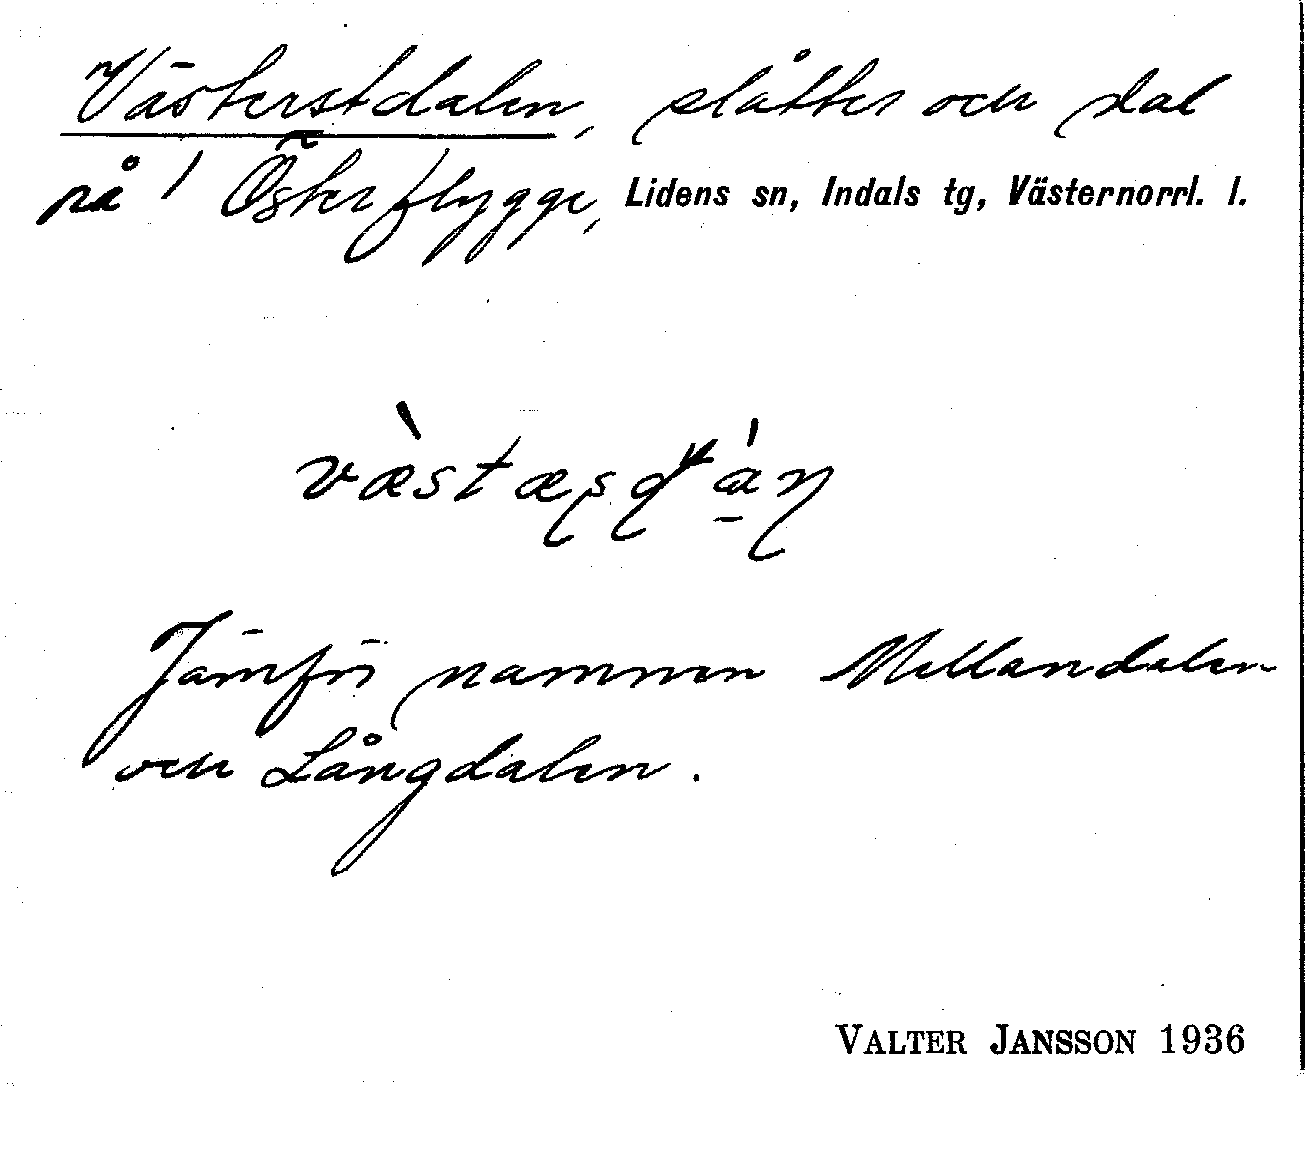 Västerstdalen, slåtter och dal
på / Österflygge, Lidens sn, Indals tg, Västernorrl. l.
Jämför namnen Mellandalen
och Långdalen.
VALTER JANSSON 1936